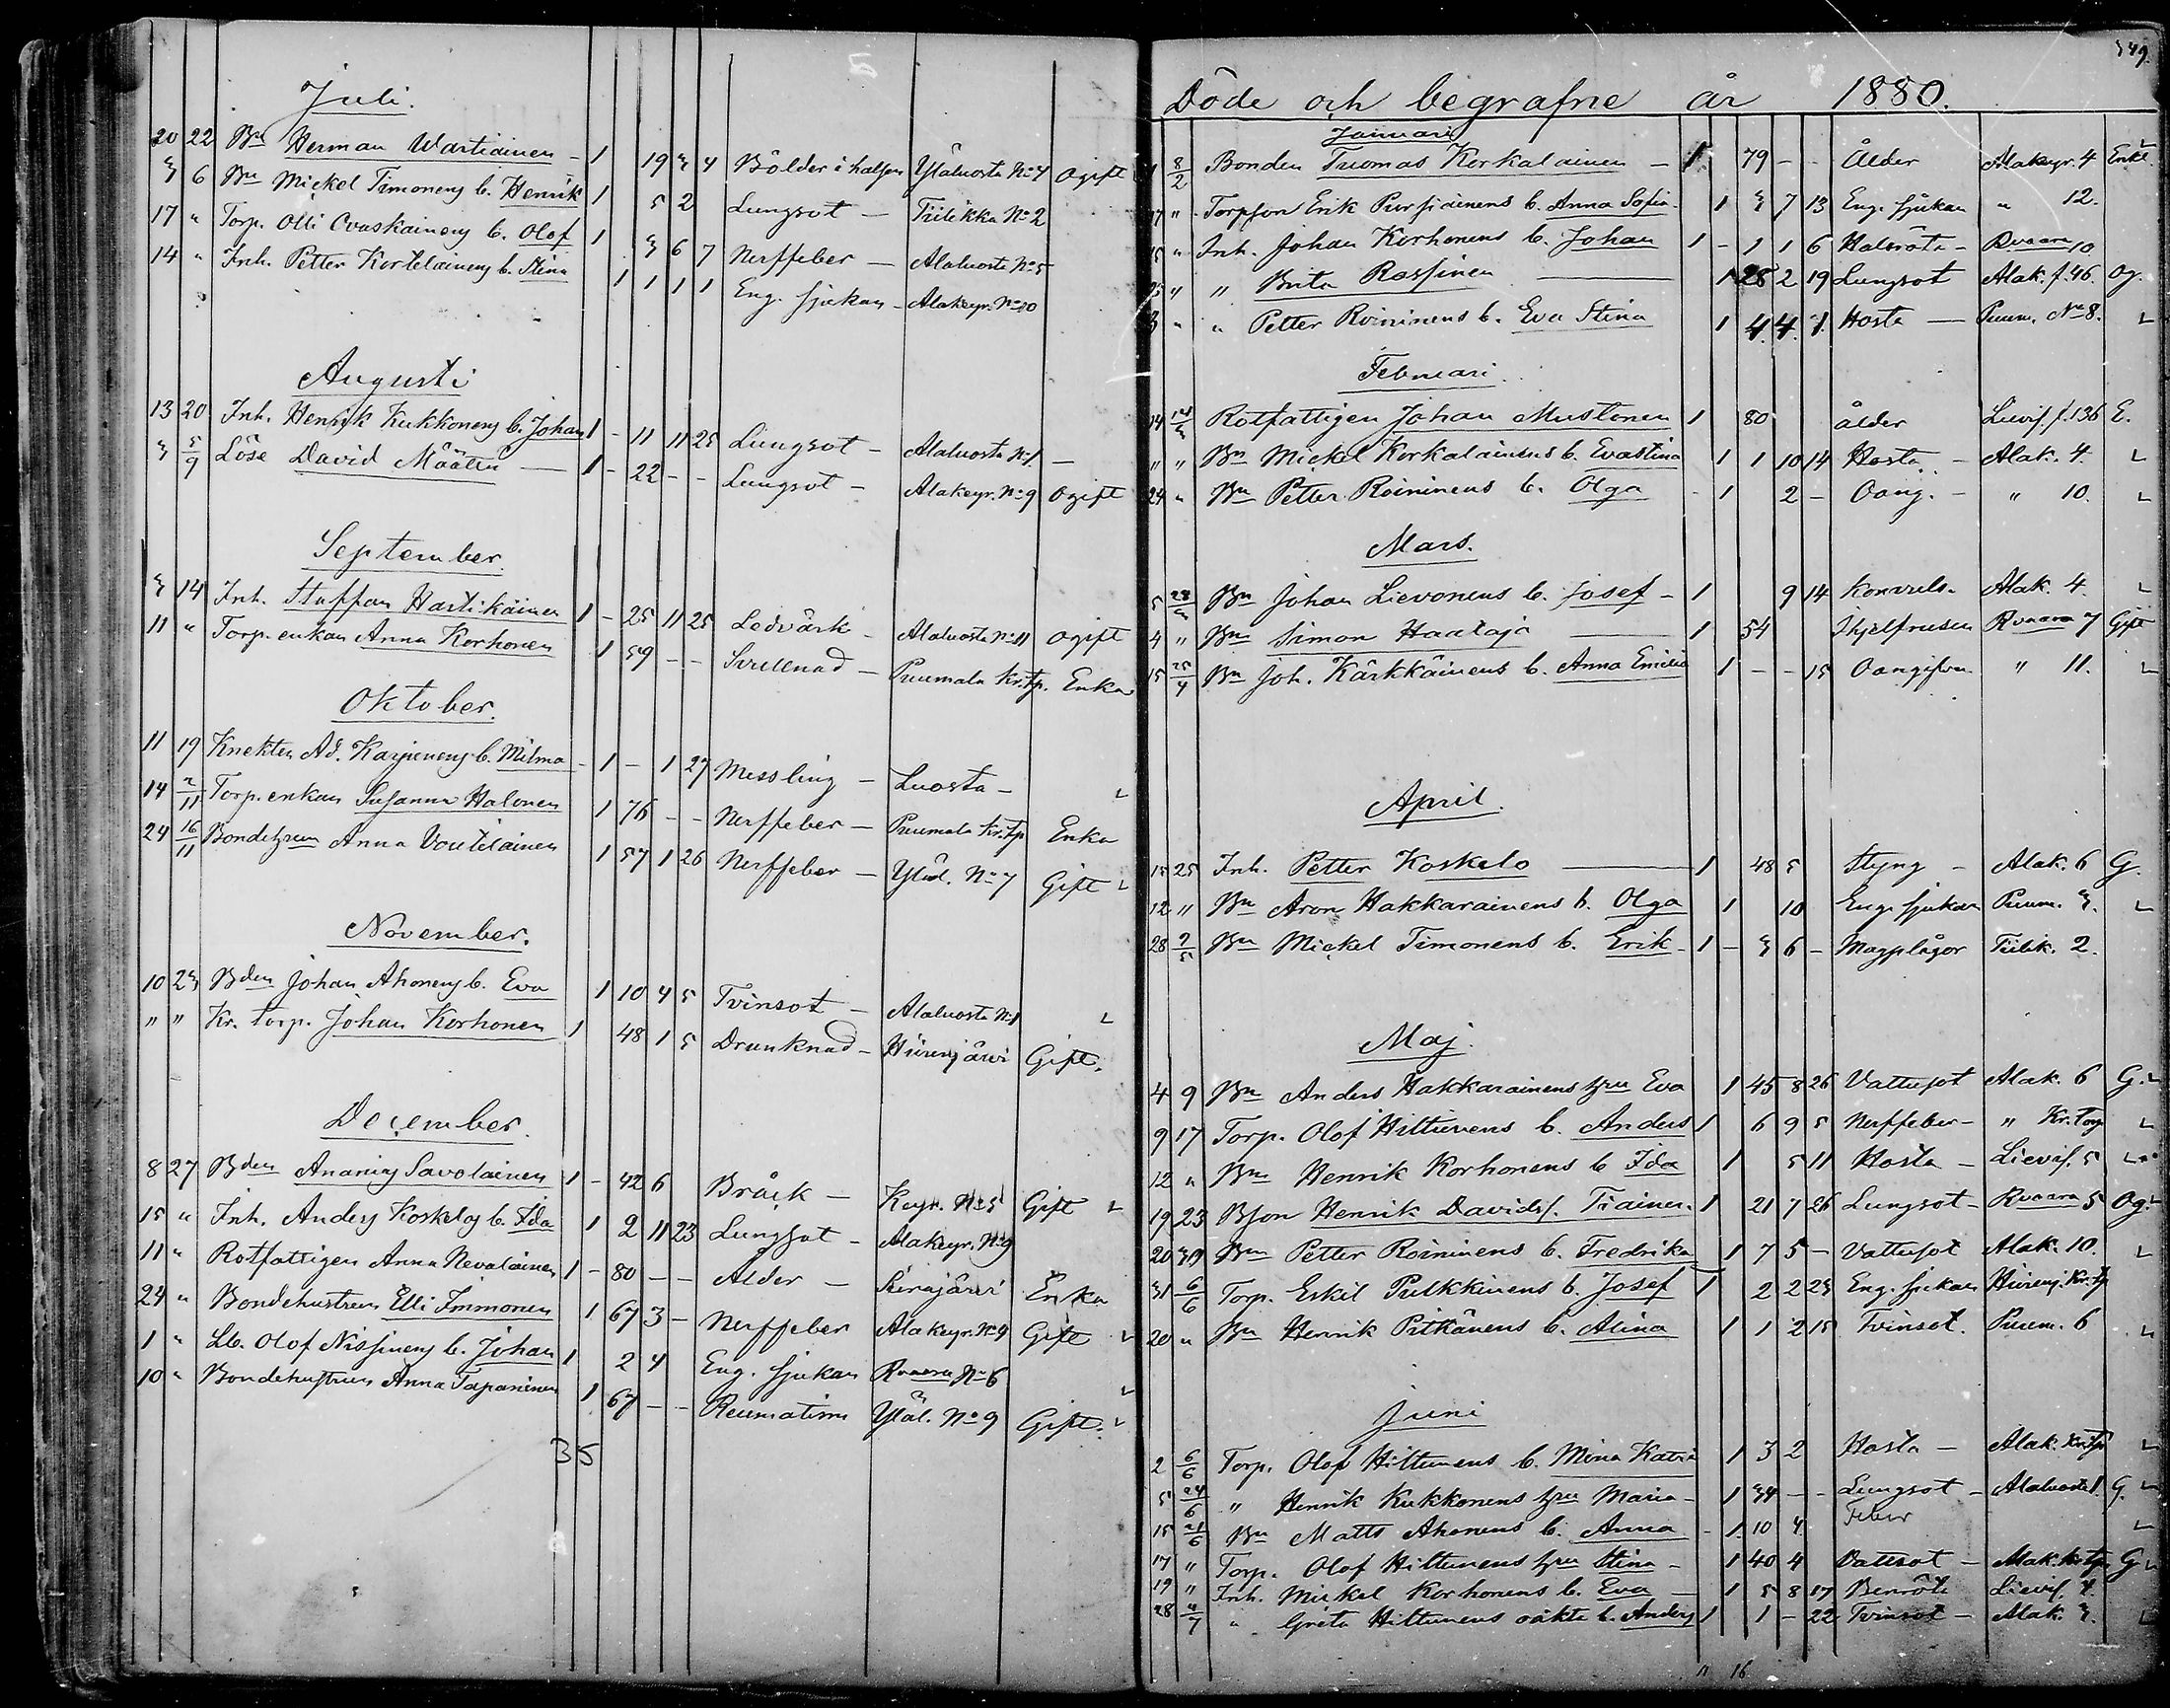 Juli.
20 22 Bn Herman Wartiainen - 1 19 3 4 Bölder i halsen Ylaluosta No 4 Ogift
3 6 Bn Mickel Timonens b. Henrik 1 5 2 Lungsot - Tiilikka No 2
17 " Torp. Olli Ovaskainens b. Olof 1 3 6 7 Nerffeber - Alaluosta No 5
14 " Inh. Petter Kortelainens b. Stina 1 1 1 1 Eng. sjukan - Alakeyr. No 10
Augusti
13 20 Inh. Henrik Kukkonens b. Johan 1 - 11 11 25 Lungsot - Alaluosta No 1 -
3 5/9 Löse David Määttä - 1 - 22 - - Lungsot - Alakeyr. No 9 Ogift
September.
3 14 Inh. Staffan Hartikainen 1 - 25 11 25 Ledvärk - Alaluosta No 11 Ogift
11 " Torp. enkan Anna Korhonen 1 59 - - Svullnad - Puumala Kr. tp. Enka
Oktober.
11 19 Knekten Ad. Karjunens b. Milma - 1 - 1 27 Messling - Luosta -
14 2/11 Torp. enkan Susanna Halonen 1 76 - - Nerffeber - Puumala Kr. tp Enka
24 16/11 Bondehustrun Anna Voutilainen 1 57 1 26 Nerffeber - Yläl. No 7 Gift
November.
10 23 Bden Johan Ahonens b. Eva 1 10 4 5 Tvinsot - Alaluosta No 1
" " Kr. torp. Johan Korhonen 1 48 1 5 Drunknad - Hiirenjärvi Gift.
December.
8 27 Bden Ananias Savolainen 1 - 42 6 Bråck - Keyr. No 5 Gift
15 " Inh. Anders Koskelos b. Ida 1 2 11 23 Lungsot - Alakeyr. No 9
11 " Rotfattigen Anna Nevalainen 1 - 80 - - Ålder - Enka
24 " Bondehustrun Elli Immonen 1 67 3 - Nerffeber Alakeyr. No 9 Gift
1 " Lb. Olof Nissinens b. Johan 1 2 4 Eng. sjukan Rvaara No 6
10 " Bondehustrun Anna Tapaninen 1 67 - - Reumatism Yläl. No 9 Gift.
35
349.
Döde och begrafne år 1880.
Januari
1 8/2 Bonden Tuomas Korkalainen - 1 79 - - Ålder Alakeyr. 4 Enkl.
17 " Torpson Erik Pursiainens b. Anna Sofia. 1 3 7 13 Eng. sjukan " 12.
15 " Inh. Johan Korhonens b. Johan 1 - 1 1 6 Halsröta - Rvaara 10
25 " " Brita Rossinen 1 28 2 19 Lungsot Alak. f. 46. Og.
3 " " Petter Roininens b. Eva Stina 1 4 4 1 Hosta - Puum. No 8.
Februari.
14 Rotfattigen Johan Mustonen 1 80 ålder Lievis. f. 136 E.
" " Bn Mickel Korkalainens b. Evastina 1 1 10 14 Hosta - Alak. 4.
24 " Bn Petter Roininens b. Olga - 1 2 - Oang. - " 10.
Mars.
5 Bn Johan Lievonens b. Josef - 1 9 14 Konvuls. Alak. 4.
4 " Bn Simon Haataja 1 54 Ihjelfrusen Rvaara 7 Gift
15 25/4 Bn Joh. Kärkkäinens b. Anna Emilia 1 - - 15 Oangifven " 11.
April.
15 25 Inh. Petter Koskelo 1 48 5 Styng - Alak. 6 G.
12 " Bn Aron Hakkarainens b. Olga 1 10 Eng. sjukan Puum. 3.
28 2/5 Bn Mickel Timonens b. Erik - 1 - 3 6 - Magplågor Tiilik. 2.
Maj.
4 9 Bn Anders Hakkarainens hru Eva 1 45 8 26 Vattusot Alak. 6 G.
9 17 Torp. Olof Hiltunens b. Anders 1 6 9 5 Nerffeber - " Kr. torp
12 " Bn Henrik Korhonens b Ida 1 5 11 Hosta - Lievis. 5
19 23 Bson Henrik Davids. Tiainen. 1 21 7 26 Lungsot - Rvaara 5 Og.
20 30 Bn Petter Roininens b. Fredrika 1 7 5 - Vattusot Alak. 10.
31 6/6 Torp. Eskil Pulkkinens b. Josef 1 2 2 23 Eng. sjukan Hiirenj. Kr. tp
20 " Bn Henrik Pitkänens b. Alina 1 1 2 15 Tvinsot. Puum. 6
Juni
2 6/6 Torp. Olof Hiltunens b. Mina Katri 1 3 2 Hosta - Alak. Kr. tp
5 24/6 " Henrik Kukkonens hru Maria - 1 34 - - Lungsot - Alaluosta 1. G.
15 21/6 Bn Matts Ahonens b. Anna - 1 10 4 Feber
17 " Torp. Olof Hiltunens hru Stina - 1 40 4 Vattsot - Alak. Kr. tp. G
19 " Inh. Mickel Korhonens b. Eva - 1 5 8 17 Benröta Lievis. 4.
28 4/7 " Greta Hiltunens oäkta b. Anders 1 1 - 22 Tvinsot - Alak. 3.
11 16